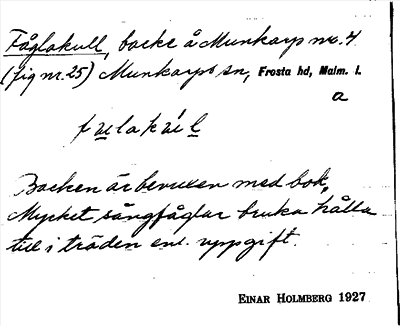 Fåglakull, backe å Munkarp nr. 4
(fig nr. 25) Munkarps sn, Frosta hd, Malm. l.
a
Backen är bevuxen med bok,
Mycket sångfåglar bruka hålla
till i träden enl. uppgift.
EINAR HOLMBERG 1927